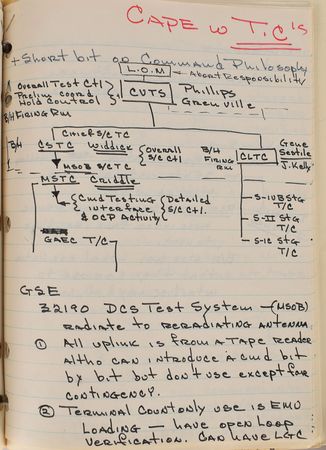 CAPE W T.C's
+ Short bit on Command Philosophy
L.O.M ← Abort Responsibility
Overall Test Ctl
Prelim Coord
Hold Control
CVTS
Phillips
Grenville
B/H FIRING RM
CHIEF S/C TC
B/H CSTC Widdick Overall S/C Ctl
B/H FIRING RM
CLTC
Gene Sestile
J. Kelly
MSOB S/C TC
MSTC Criddle
Cmd Testing interface & OCP Activity
Detailed S/C Ctl.
S-IVB STG T/C
S-II STG T/C
S-IC STG T/C
GAEC T/C
GSE
32190 DCS Test System — (MSOB)
radiate to reradiating antenna
① All uplink is from a tape reader
altho can introduce a cmd bit
by bit but don't use except for
contingency.
② Terminal Count only use is EMU
Loading — have open loop
verification. Can have LGC